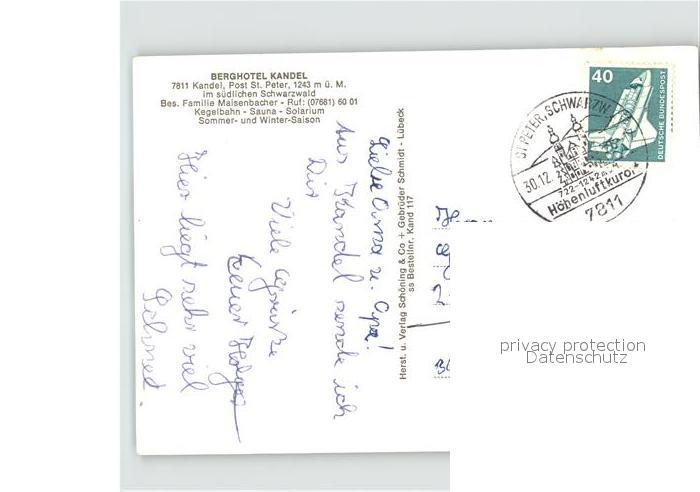 BERGHOTEL KANDEL
7811 Kandel, Post St. Peter, 1243 m ü. M.
im südlichen Schwarzwald
Bes. Familie Maisenbacher - Ruf: (07681) 60 01
Kegelbahn - Sauna - Solarium
Sommer- und Winter-Saison
Liebe Oma u. Opa!
Aus Kandel sende ich
Dir
Viele Grüsse
Euer Holger
Hier liegt sehr viel
Schnee.
Herst. u. Verlag Schöning & Co + Gebrüder Schmidt - Lübeck
ss Bestellnr. Kand 117
40
DEUTSCHE BUNDESPOST
ST PETER, SCHWARZW
30.12.
722-1242 m
Höhenluftkuror
7811
privacy protection
Datenschutz